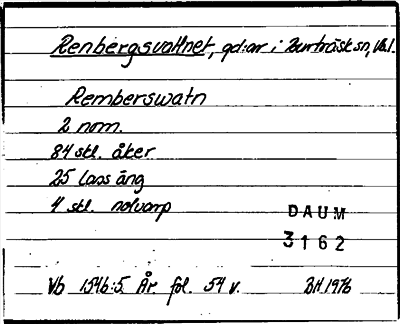 Renbergsvattnet, gd:ar i Burträsk sn, Vb.l.
Remberswatn
2 nom.
84 skl. åker
25 lass äng
4 skl. notvarp
DAUM
3162
Vb 1546:5 År fol. 54 v. BH 1976